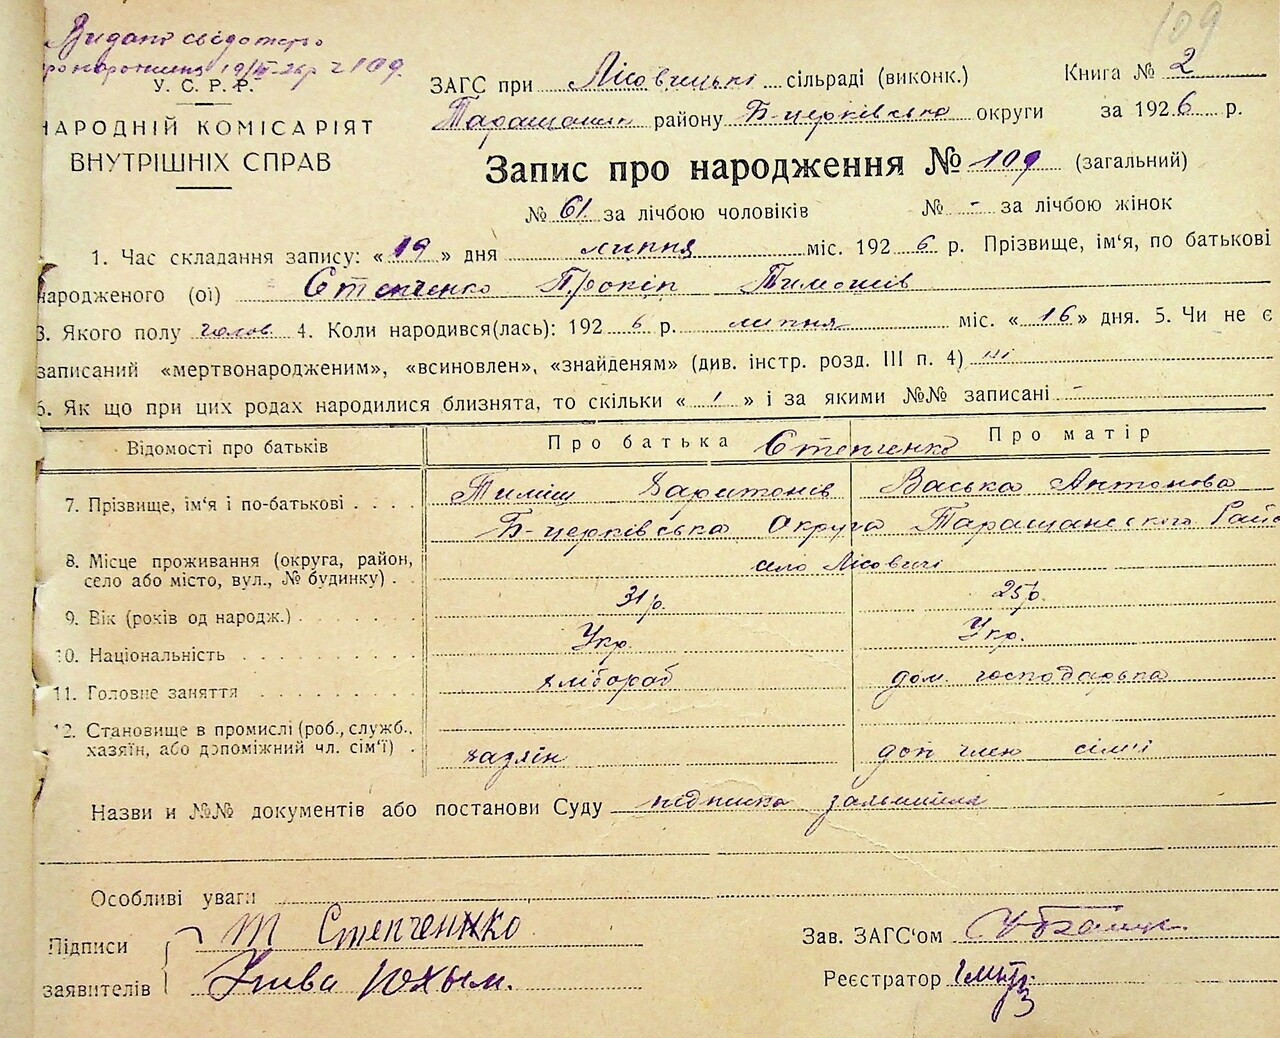 109
Видано свідотство
про нарожения 19/VII-26 р ч 109.
У. С. Р. Р.
НАРОДНІЙ КОМІСАРІЯТ
ВНУТРІШНІХ СПРАВ
ЗАГС при Лісовицькі сільраді (виконк.) Книга № 2
Таращанск району Б-церківсько округи за 1926 р.
Запис про народження № 109 (загальний)
№ 61 за лічбою чоловіків № - за лічбою жінок
1. Час складання запису: « 19 » дня липня міс. 1926 р. Прізвище, ім'я, по батькові
народженого (ої) Степченко Прокіп Тимошів
3. Якого полу чолов. 4. Коли народився(лась): 1926 р. липня міс. « 16 » дня. 5. Чи не є
записаний «мертвонародженим», «всиновлен», «знайденям» (див. інстр. розд. III п. 4)
6. Як що при цих родах народилися близнята, то скільки « 1 » і за якими №№ записані -
Відомості про батьків Про батька Степченко Про матір
7. Прізвище, ім'я і по-батькові . . . . Тиміш Харитонів Васька Антонова
Б-церківська Округа Таращанського Райо
8. Місце проживання (округа, район,
село або місто, вул., № будинку) . . село Лісовичі
9. Вік (років од народж.) . . . . . . . 31 р. 25 р.
10. Національність . . . . . . . . . . Укр. Укр.
11. Головне заняття . . . . . . . . . хлібораб дом. господарька
12. Становище в промислі (роб., служб.,
хазяїн, або допоміжний чл. сім'ї) . хазяін доп член сімі
Назви и №№ документів або постанови Суду підписка
Особливі уваги
Підписи Т Степченко Зав. ЗАГС'ом
заявителів Юхым. Реєстратор